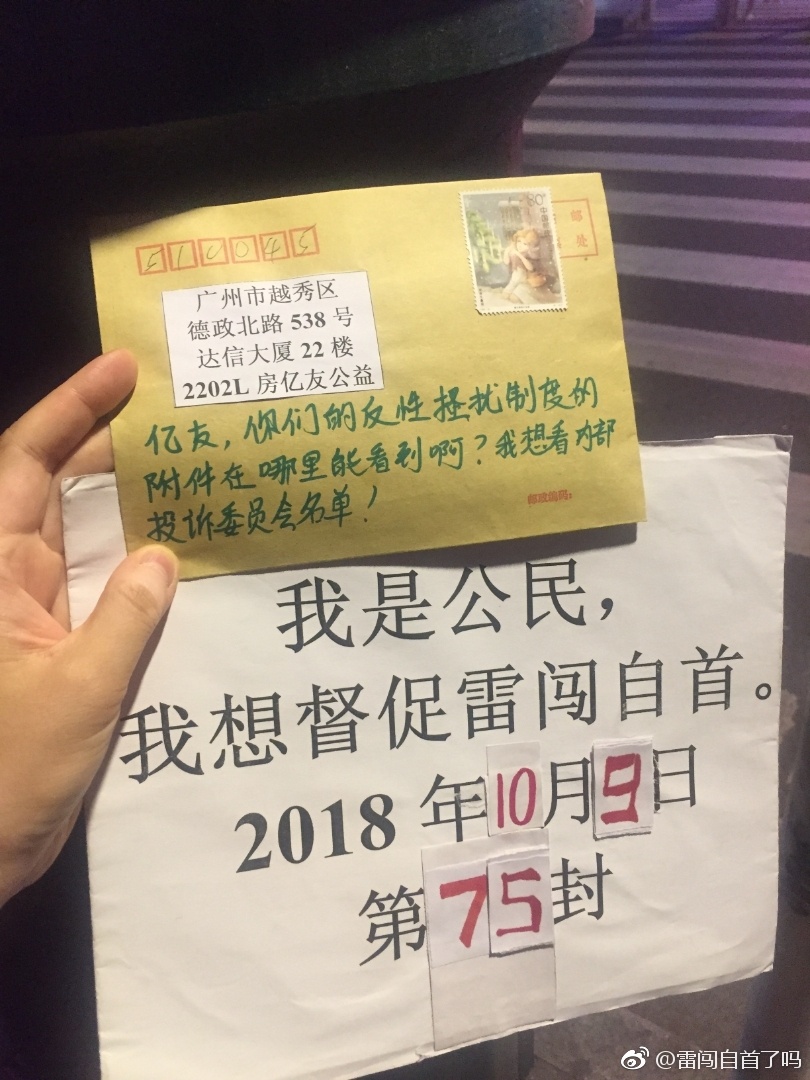 510045
80分
中国邮政
邮
处
广州市越秀区
德政北路 538 号
达信大厦 22 楼
2202L 房亿友公益
亿友，你们的反性拯扰制度的
附件在哪里能看到啊？我想看内部
投诉委员会名单！
邮政编码：
我是公民，
我想督促雷闯自首。
2018 年 10 月 9 日
第 75 封
@雷闯自首了吗